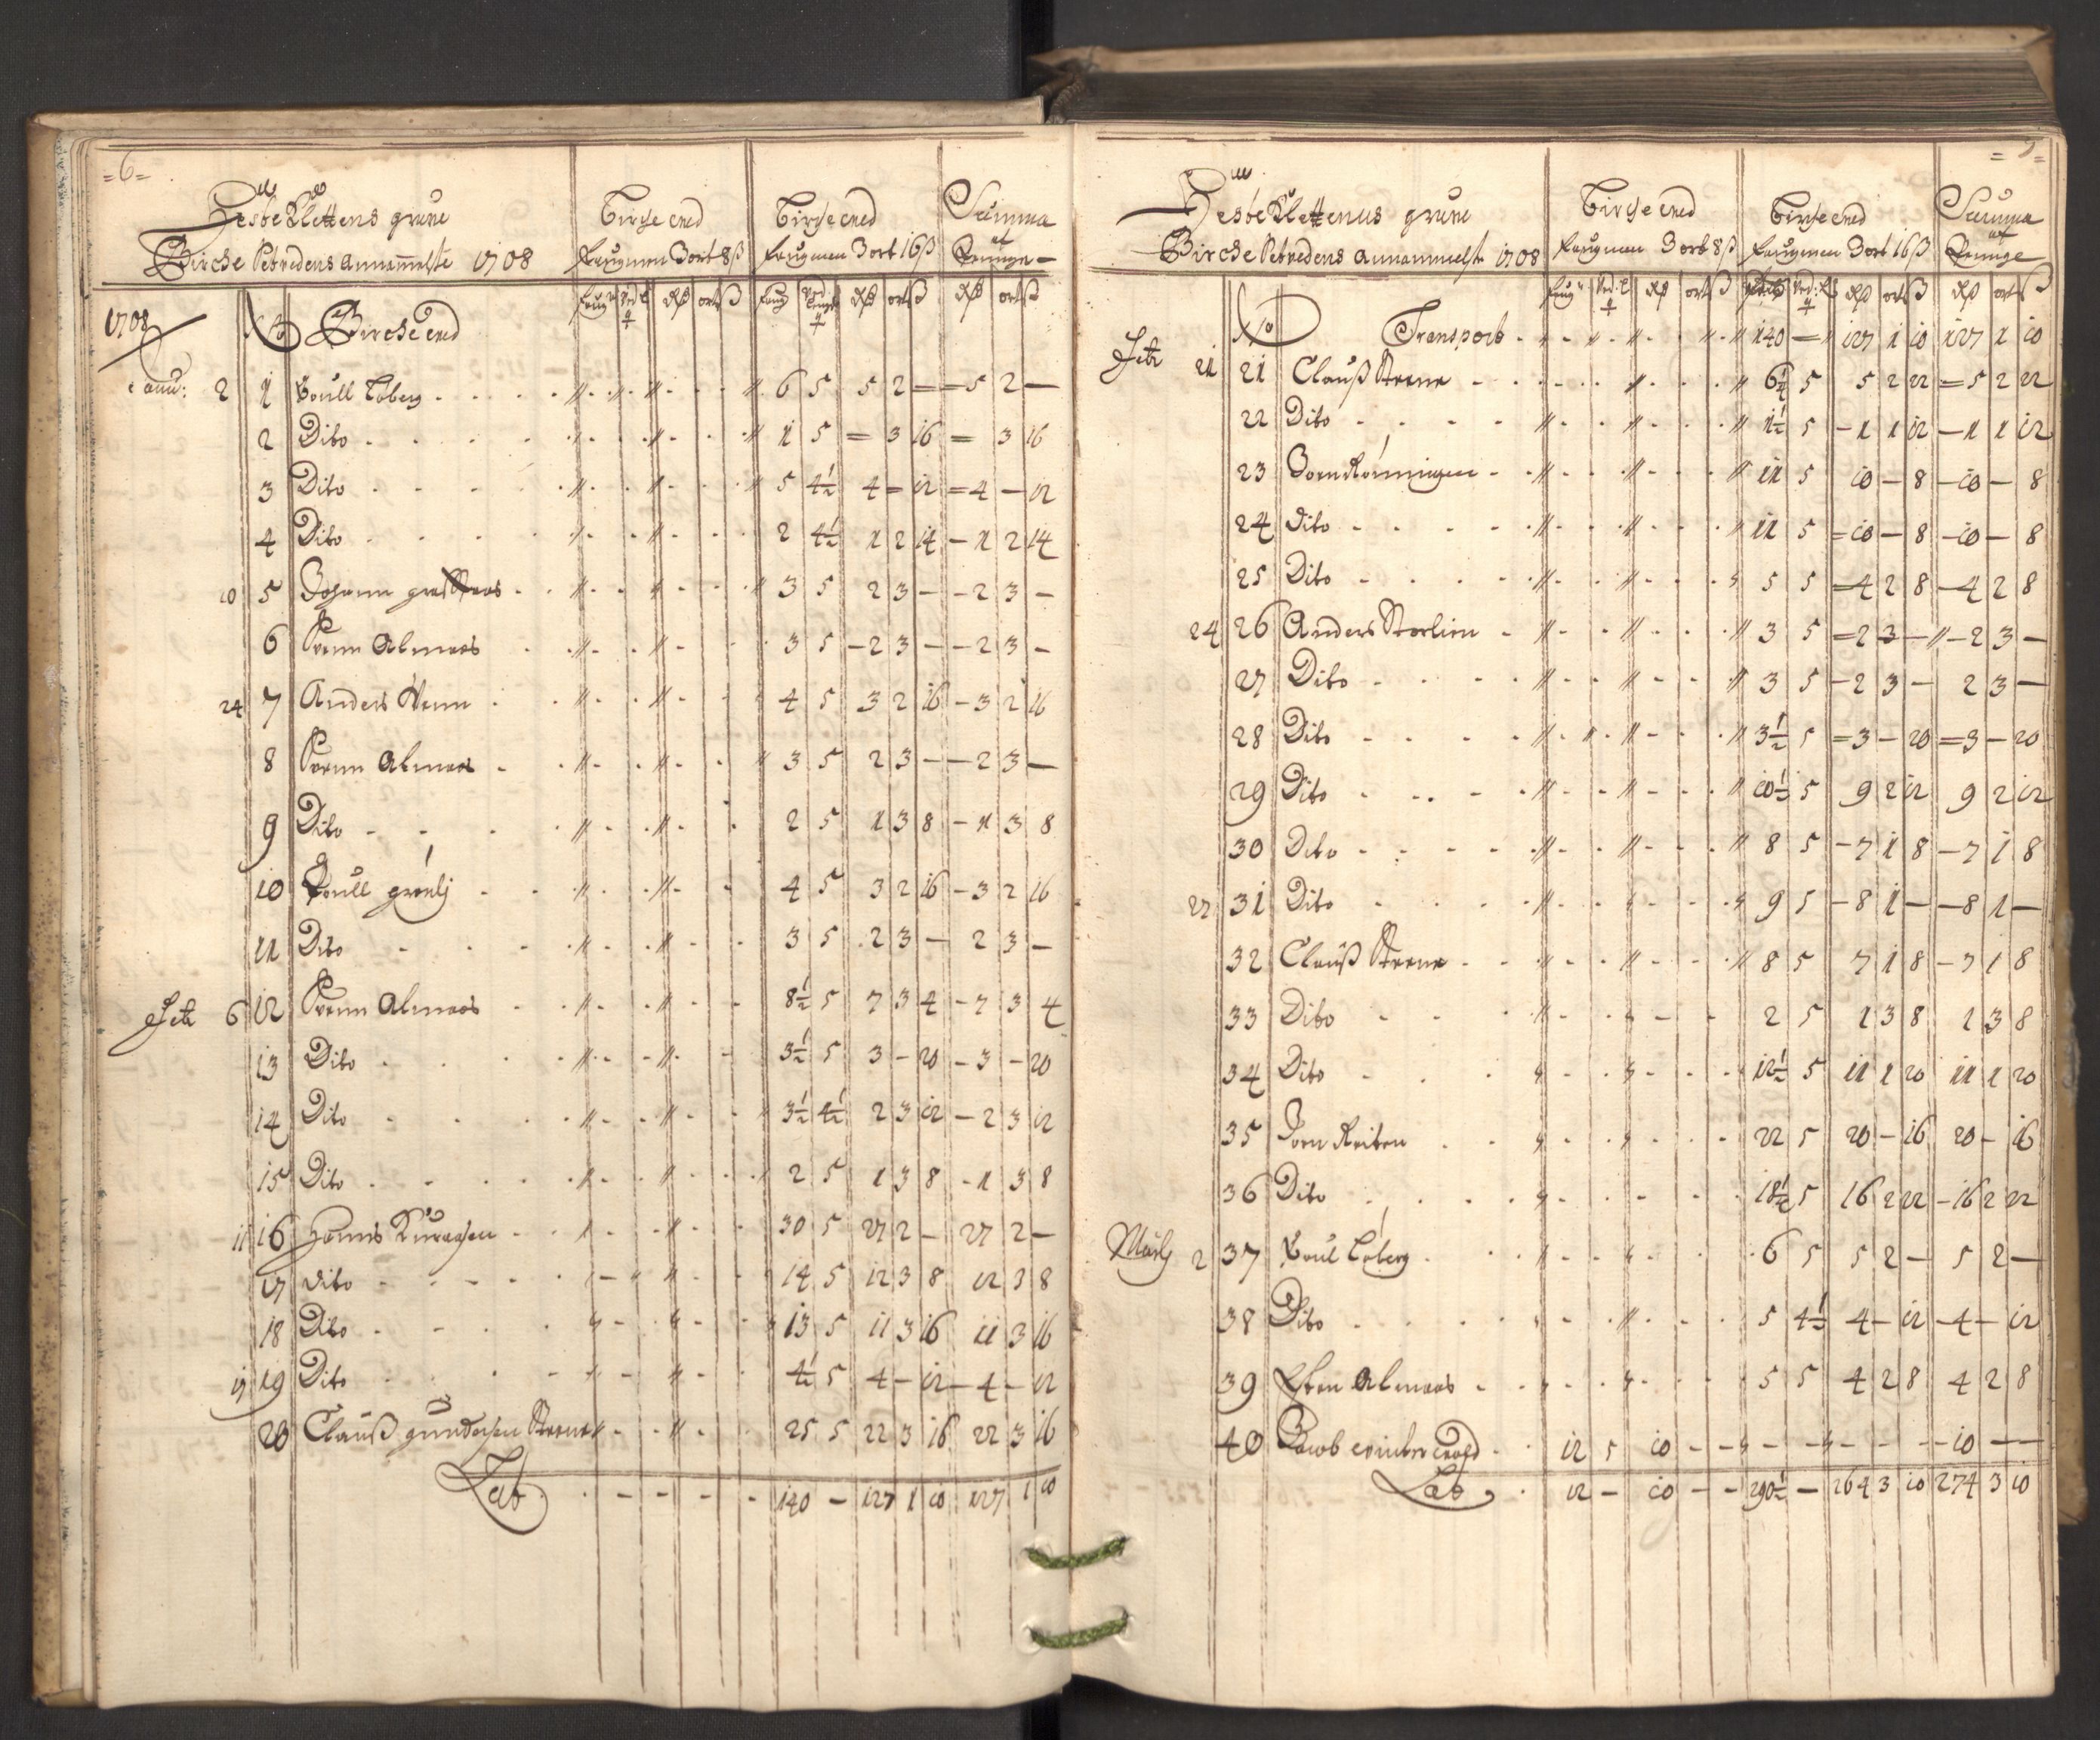 =6=
grube
Bircke Vedens annammelse 1708
Bircke ved
faugnen 3 ort 8 ß
Bircke ved
faugnen 3 ort 16 ß
Summa
af
Penge
1708 No Bircke ved
2 1 Poull Loberg 6 5 5 2 — 5 2 —
2 Dito 1 5 = 3 16 = 3 16
3 Dito 5 4½ 4 — 12 = 4 — 12
4 Dito 2 4½ 1 2 14 — 1 2 14
10 5 Johann 3 5 2 3 — 2 3 —
6 Svenn Aalmaas 3 5 2 3 — 2 3 —
24 7 Anders 4 5 3 2 16 — 3 2 16
8 Svenn Aalmaas 3 5 2 3 — 2 3 —
9 Dito 2 5 1 3 8 — 1 3 8
10 Poull grønlj 4 5 3 2 16 — 3 2 16
11 Dito 3 5 2 3 — 2 3 —
Febr 6 12 Svenn Aalmaas 8½ 5 7 3 4 — 7 3 4
13 Dito 3½ 5 3 — 20 — 3 — 20
14 Dito 3½ 4½ 2 3 12 — 2 3 12
15 Dito 2 5 1 3 8 — 1 3 8
11 16 Hanns 30 5 27 2 — 27 2 —
17 Dito 14 5 12 3 8 12 3 8
18 Dito 13 5 11 3 16 11 3 16
17 19 Dito 4½ 5 4 — 12 — 4 — 12
20 Clauß gundersen Steene 25 5 22 3 16 22 3 16
Lat 140 — 127 1 10 127 1 10
grube
Bircke Vedens annammelse 1708
Bircke ved
faugnen 3 ort 8 ß
Bircke ved
faugnen 3 ort 16 ß
Summa
af
Penge
No Transport 140 — 127 1 10 127 1 10
Febr 21 21 Clauß Steene 6½ 5 5 2 22 = 5 2 22
22 Dito 1½ 5 — 1 1 12 — 1 1 12
23 Joen Rønningen 11 5 10 — 8 — 10 — 8
24 Dito 11 5 = 10 — 8 — 10 — 8
25 Dito 5 5 = 4 2 8 — 4 2 8
24 26 Anders Storlien 3 5 = 2 3 — 2 3 —
27 Dito 3 5 — 2 3 — 2 3 —
28 Dito 3½ 5 = 3 — 20 = 3 — 20
29 Dito 10½ 5 9 2 12 9 2 12
30 Dito 8 5 — 7 1 8 — 7 1 8
27 31 Dito 9 5 — 8 1 — 8 1 —
32 Clauß Steene 8 5 7 1 8 — 7 1 8
33 Dito 2 5 1 3 8 1 3 8
34 Dito 12½ 5 11 1 20 11 1 20
35 Joen Reiten 22 5 20 — 16 20 — 16
36 Dito 18½ 5 16 2 22 — 16 2 22
Martj 2 37 Poul Loberg 6 5 5 2 — 5 2 —
38 Dito 5 4½ 4 — 12 — 4 — 12
39 Aalmaas 5 5 4 2 8 4 2 8
40 Jacob 12 5 10 — — 10 — —
Lat 12 — 10 — — 290½ — 264 3 10 274 3 10